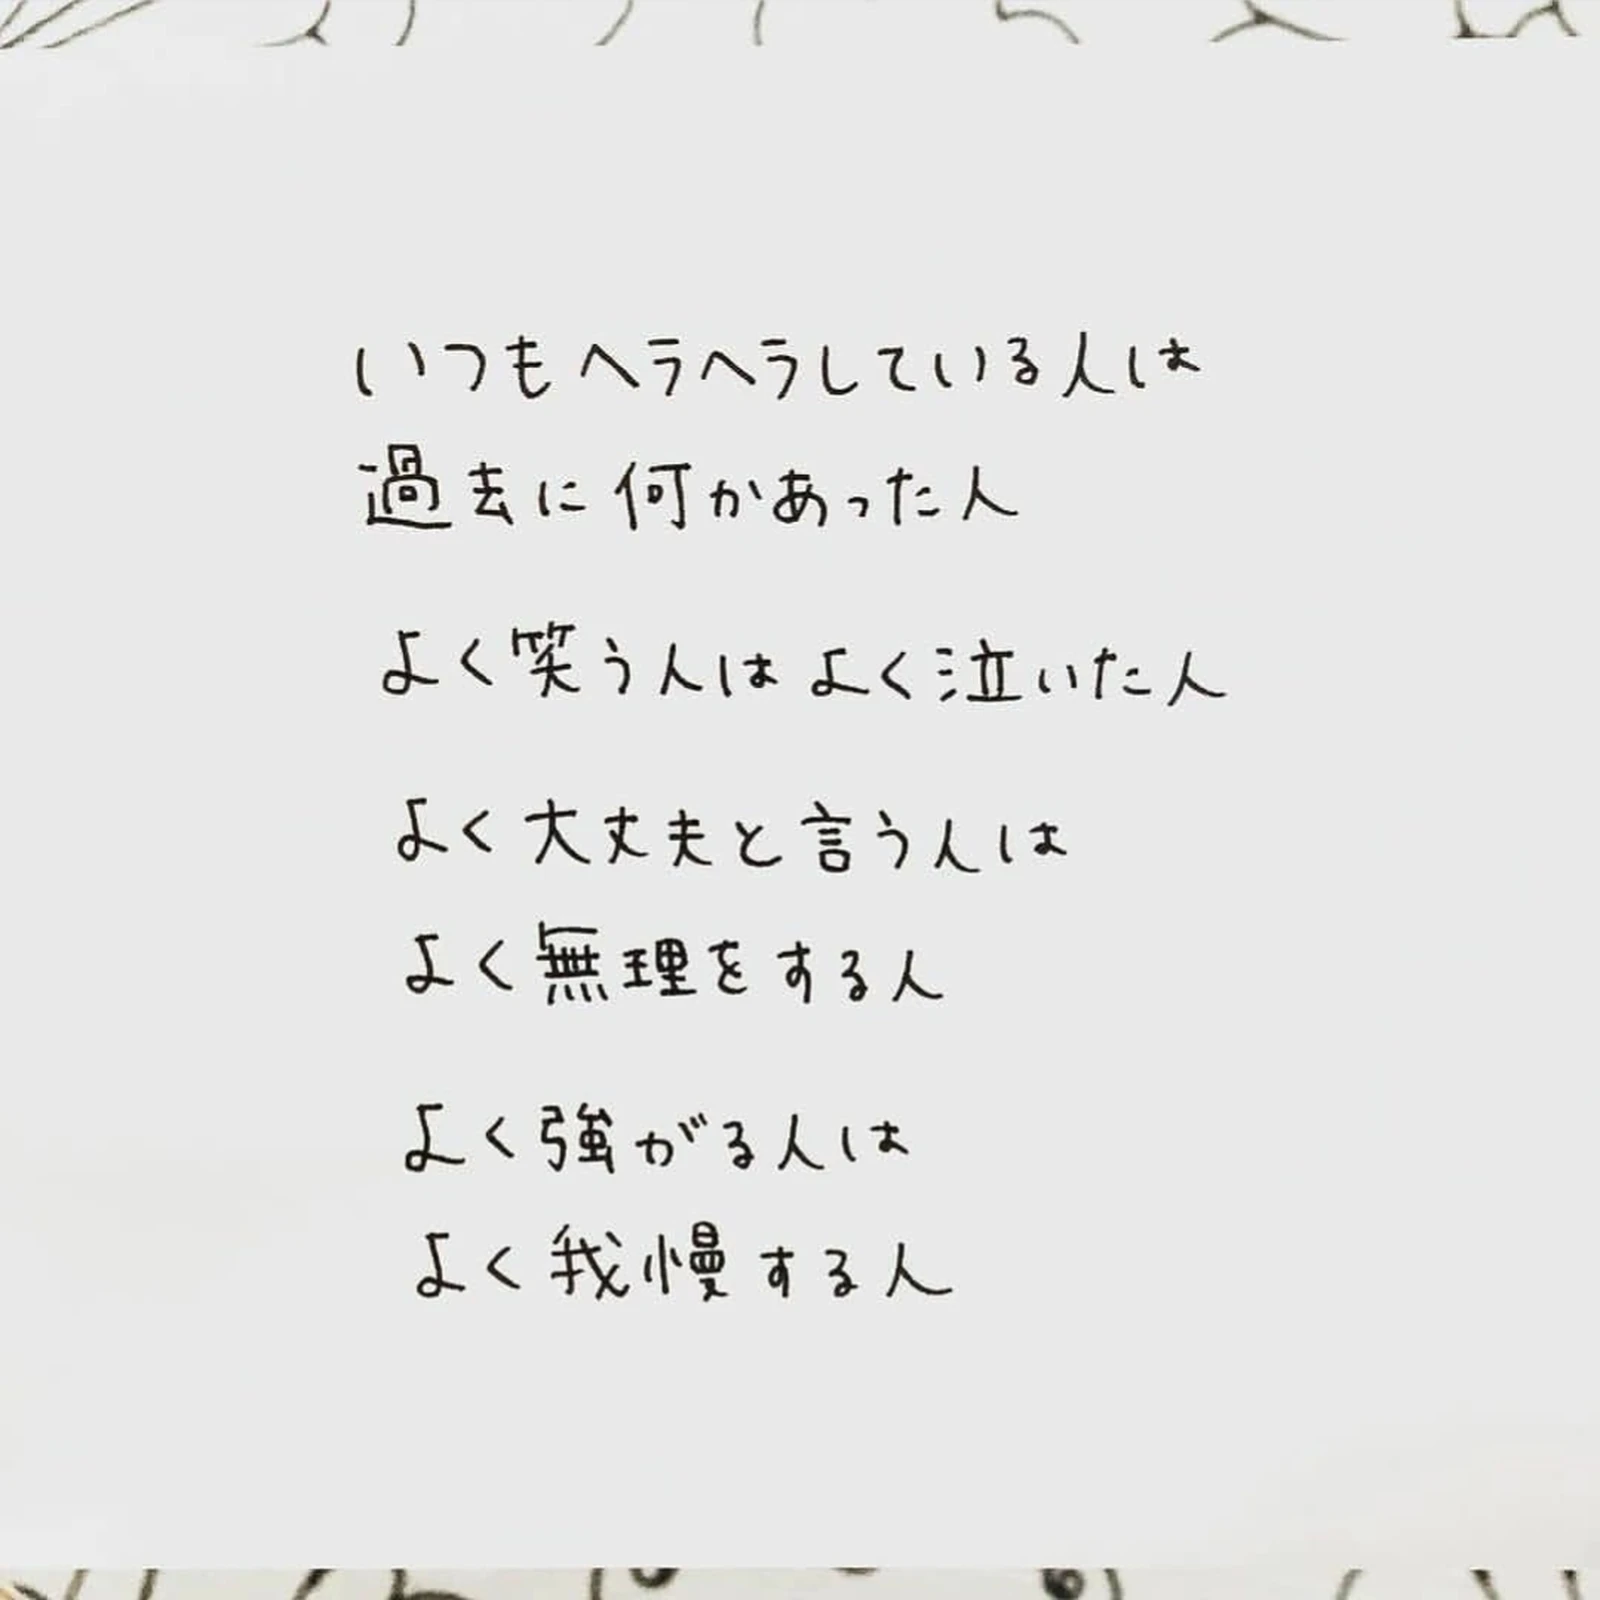 いつもヘラヘラしている人は
過去に何かあった人
よく笑う人は よく泣いた人
よく大丈夫と言う人は
よく無理をする人
よく強がる人は
よく我慢する人